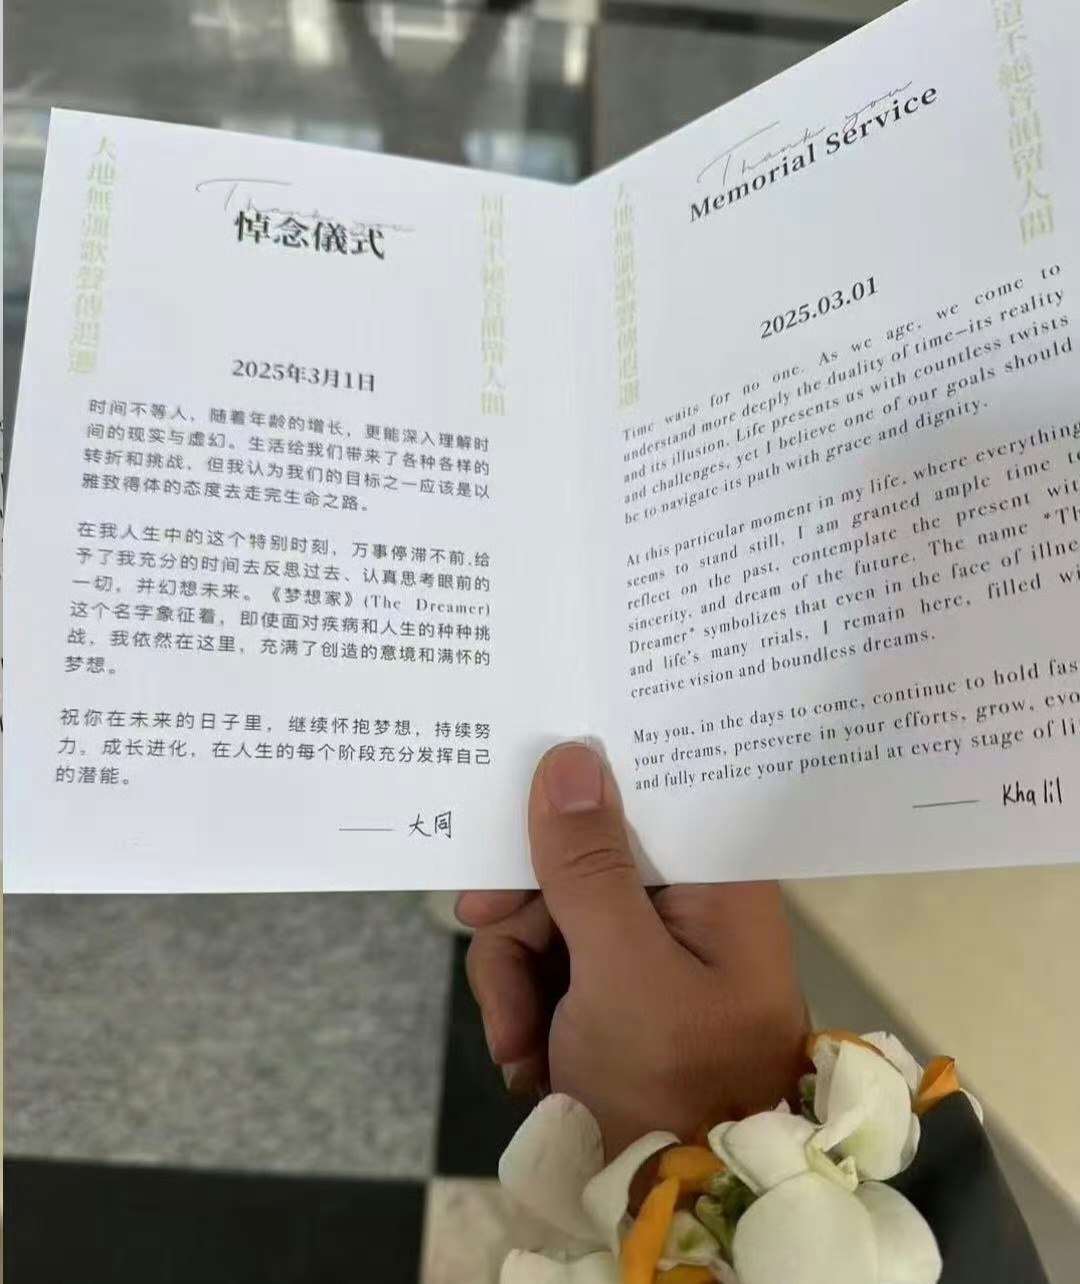 天地無疆歌聲傳遐邇
Thank you
悼念儀式
同道不絕音韻留人間
2025年3月1日
时间不等人，随着年龄的增长，更能深入理解时
间的现实与虚幻。生活给我们带来了各种各样的
转折和挑战，但我认为我们的目标之一应该是以
雅致得体的态度去走完生命之路。
在我人生中的这个特别时刻，万事停滞不前,给
予了我充分的时间去反思过去、认真思考眼前的
一切，并幻想未来。《梦想家》(The Dreamer)
这个名字象征着，即使面对疾病和人生的种种挑
战，我依然在这里，充满了创造的意境和满怀的
梦想。
祝你在未来的日子里，继续怀抱梦想，持续努
力，成长进化，在人生的每个阶段充分发挥自己
的潜能。
—— 大同
天地無疆歌聲傳遐邇
Thank you
Memorial Service
道不絕音韻留人間
2025.03.01
Time waits for no one. As we age, we come to
understand more deeply the duality of time—its reality
and its illusion. Life presents us with countless twists
and challenges, yet I believe one of our goals should
be to navigate its path with grace and dignity.
At this particular moment in my life, where everything
seems to stand still, I am granted ample time to
reflect on the past, contemplate the present wit
sincerity, and dream of the future. The name *Th
Dreamer* symbolizes that even in the face of illne
and life's many trials, I remain here, filled wi
creative vision and boundless dreams.
May you, in the days to come, continue to hold fas
your dreams, persevere in your efforts, grow, evo
and fully realize your potential at every stage of li
—— Khalil